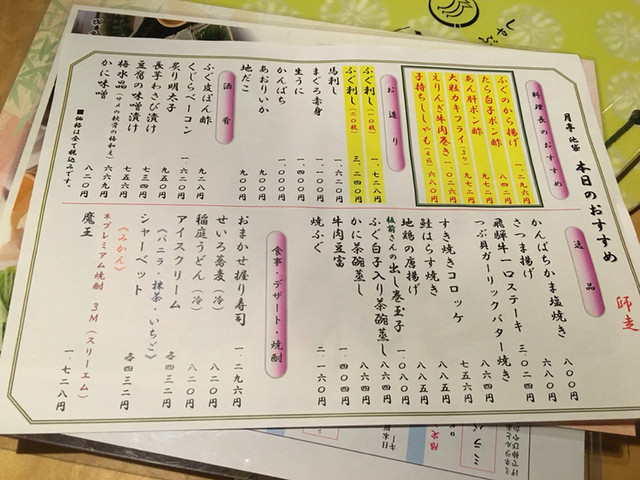 月亭 池袋 本日のおすすめ
師走
料理長のおすすめ
ふぐのから揚げ 一.二九六円
たら白子ポン酢 八六四円
あん肝ポン酢 九七二円
大粒カキフライ(3ケ) 九七二円
えりんぎ牛肉巻き 一.〇二六円
子持ちししゃも(四尾) 六八〇円
お造り
ふぐ刺し(一〇枚) 一.七二八円
ふぐ刺し(二〇枚) 三.二四〇円
馬刺し 一.六二〇円
まぐろ赤身 一.〇〇〇円
生うに 一.四〇〇円
かんぱち 一.〇〇〇円
あおりいか 九〇〇円
地だこ 九〇〇円
酒肴
ふぐ皮ぽん酢 九二八円
くじらベーコン 一.六二〇円
炙り明太子 七五六円
長芋わさび漬け
豆腐の味噌漬け 七三四円
梅水晶(サメの軟骨の梅和え) 六七九円
かに味噌 八二〇円
■価格は全て税込みです。
逸品
かんぱちかま塩焼き 八〇〇円
さつま揚げ 八六〇円
飛騨牛一口ステーキ 三.〇二四円
つぶ貝ガーリックバター焼き 八六四円
すき焼きコロッケ 七五六円
鮭はらす焼き 八八五円
地鶏の唐揚げ 八八五円
板前さんの出し巻玉子 一.〇八〇円
ふぐ白子入り茶碗蒸し 八六四円
かに茶碗蒸し 八六四円
牛肉豆富 一.〇〇四円
焼ふぐ 二.一六〇円
食事・デザート・焼酎
おまかせ握り寿司 一.二九六円
せいろ蕎麦(冷) 八二〇円
稲庭うどん(冷) 八二〇円
アイスクリーム
(バニラ・抹茶・いちご) 各四三二円
シャーベット
(みかん) 各四三二円
*プレミアム焼酎 3M(スリーエム)
魔王 一.七二八円